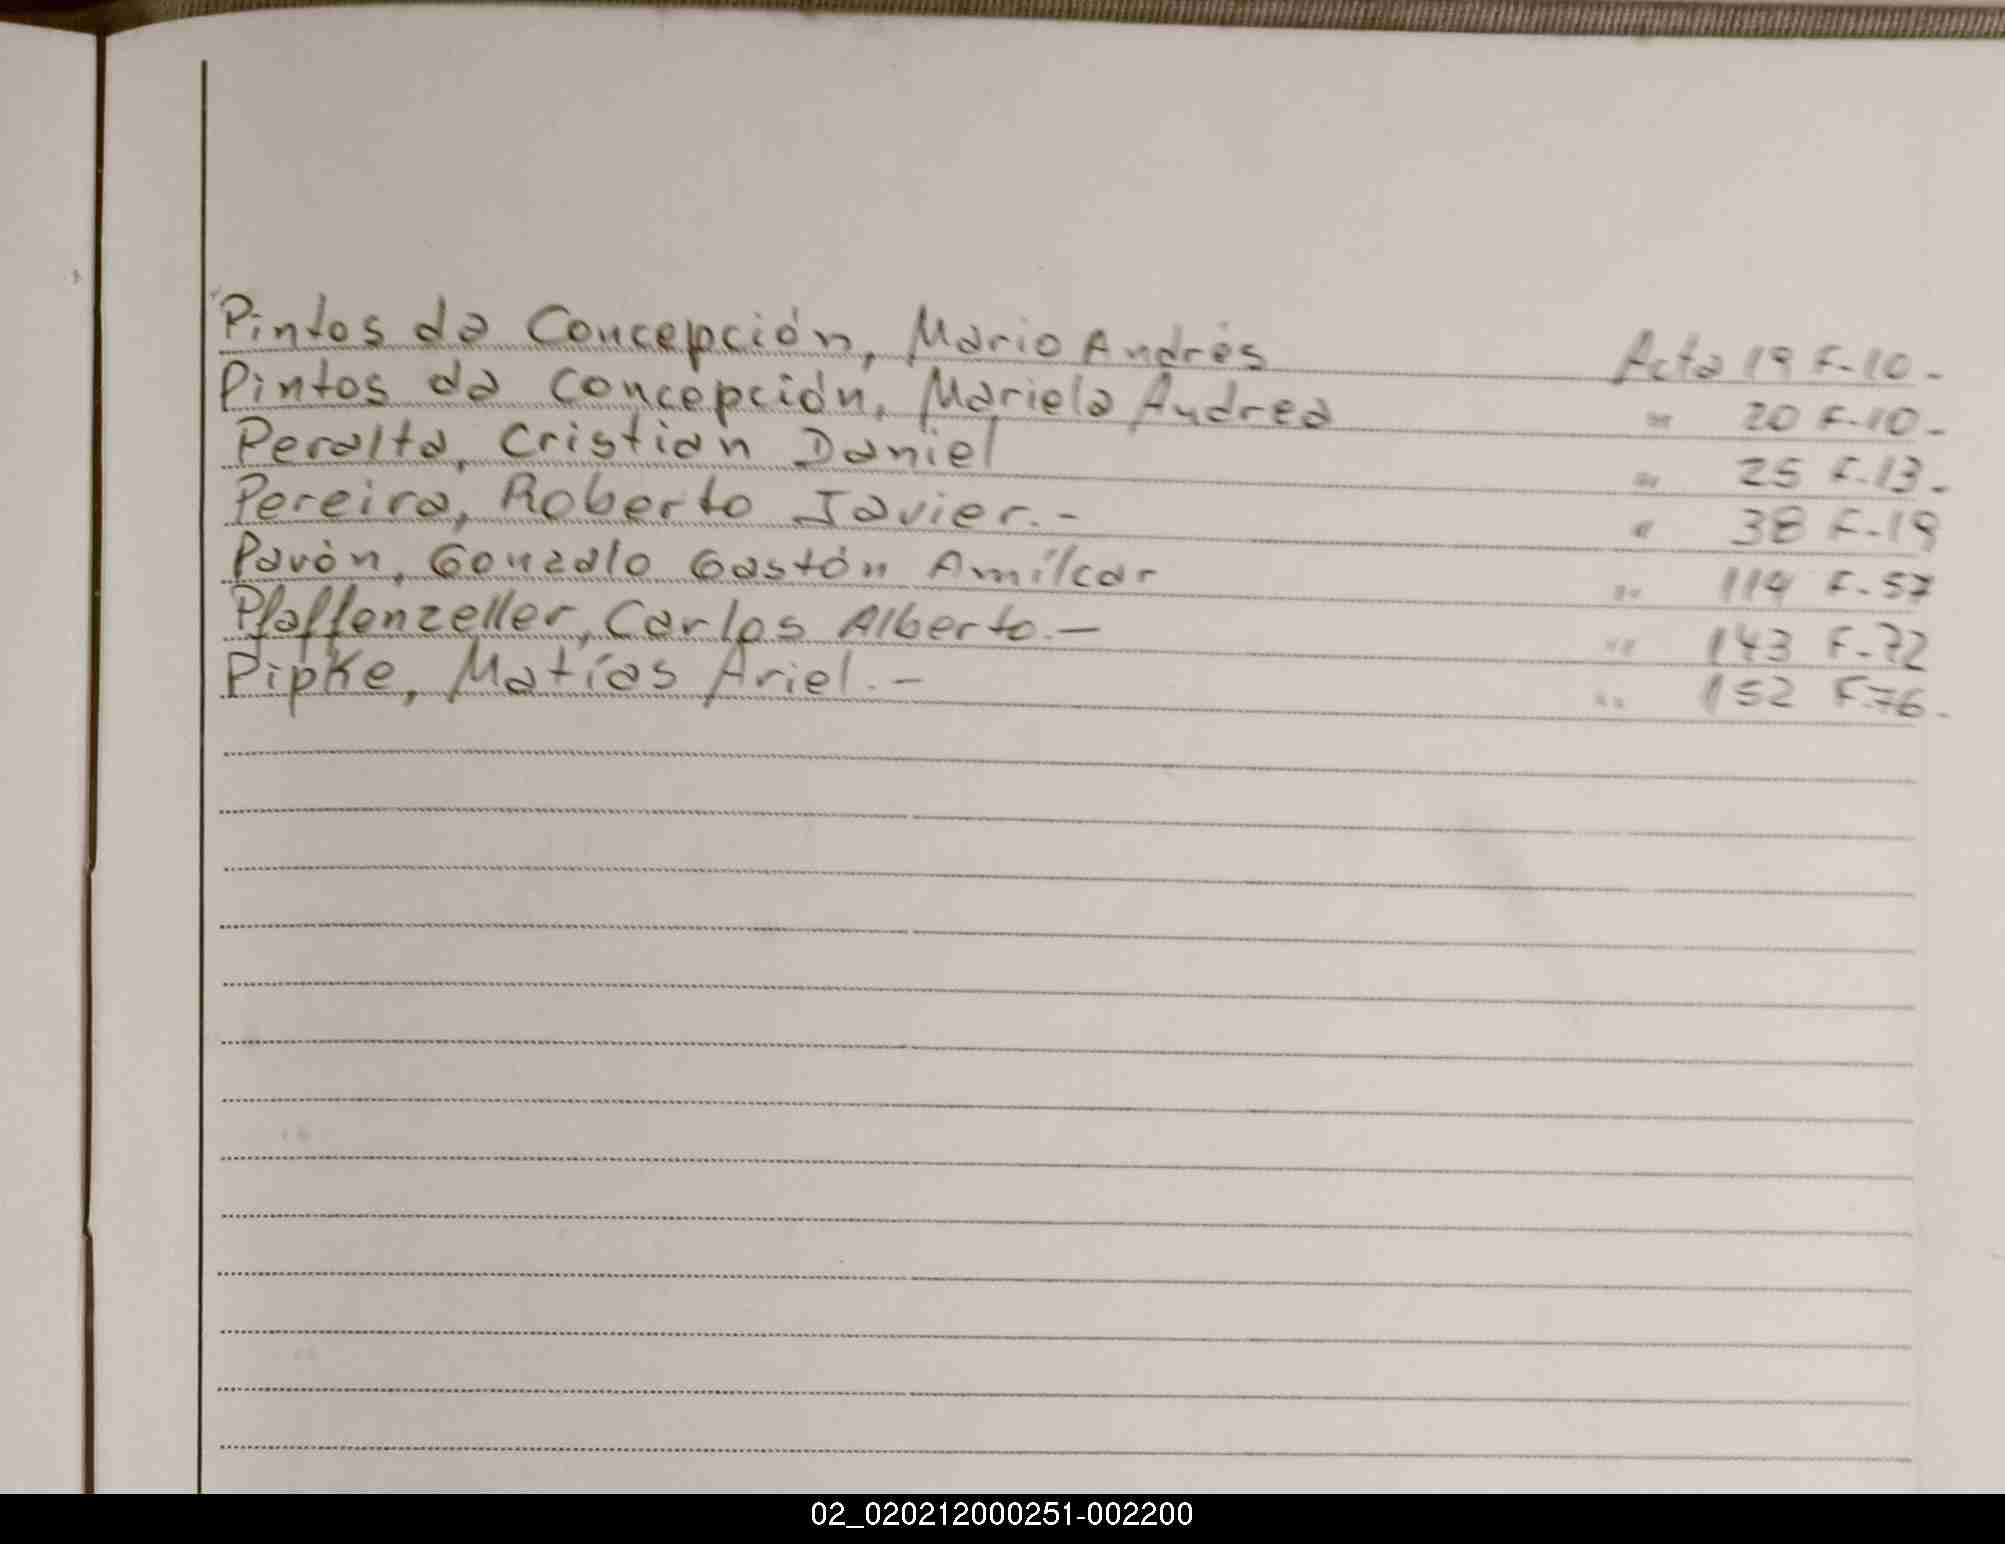 Pintos da Concepción, Mario Andrés Acta 19 F-10-
Pintos da Concepción, Mariela Andrea " 20 F-10-
Peralta, Cristian Daniel " 25 F-13-
Pereira, Roberto Javier.- " 38 F-19
Pavón, Gonzalo Gastón Amílcar " 114 F-57
Pfaffenzeller, Carlos Alberto.- " 143 F-72
Pipke, Matías Ariel.- " 152 F-76-
02_020212000251-002200